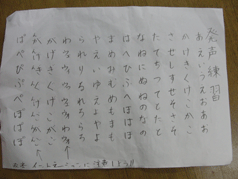 発声練習
あえいうえおあお
かけきくけこかこ
させしすせそさそ
たてちつてとたと
なねにぬねのなの
はへひふへほはほ
まめみむめもまも
やえいゆえよやよ
られりるれろらろ
わえいうえをわを
がげぎぐげごがご
ばべびぶべぼばぼ
ぱぺぴぷぺぽぱぽ